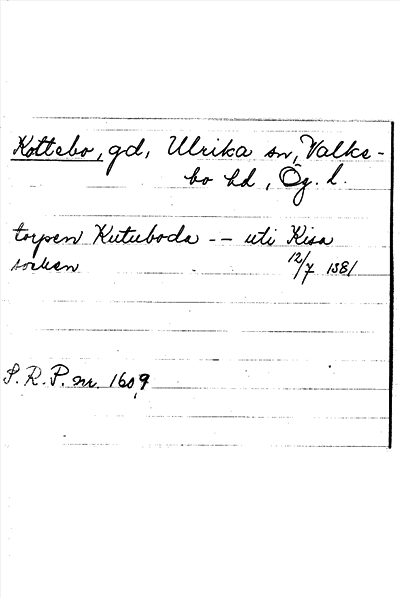 Kottebo, gd, Ulrika sn, Valke-
bo hd, Ög. l.
torpen Kutuboda -- uti Kisa
socken 12/7 1381
S.R.P. nr. 1609